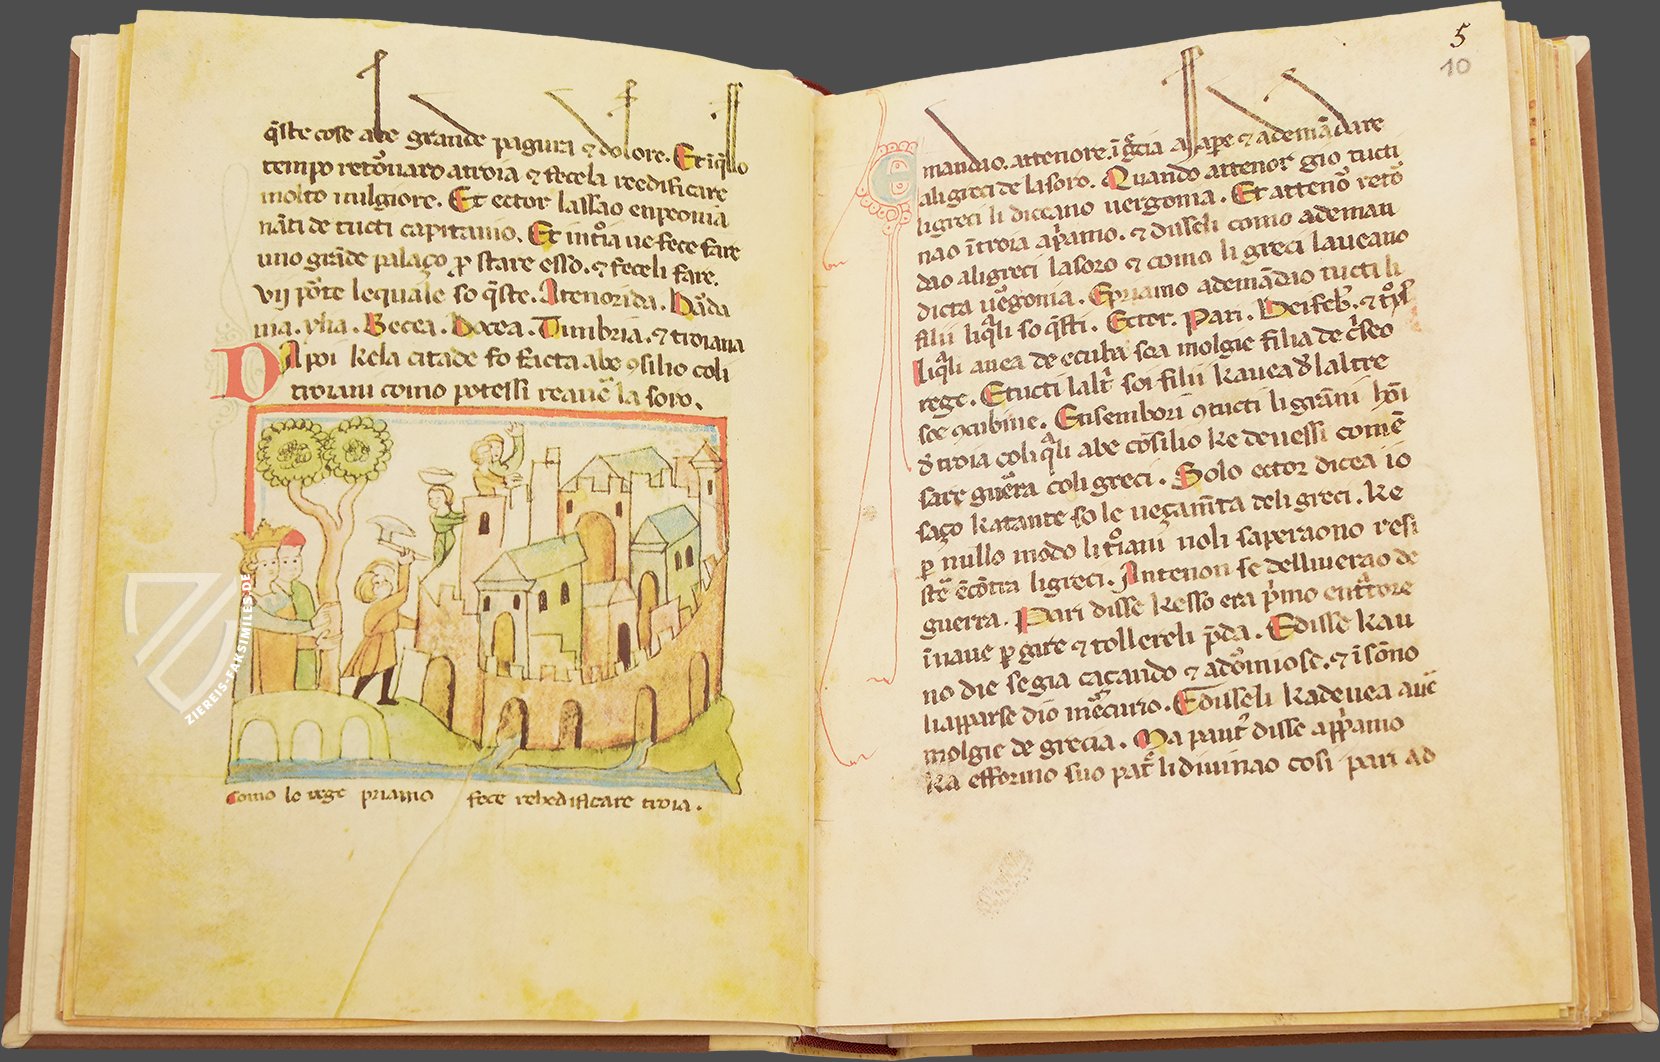 q̃ste cose abe grande pagura ⁊ dolore. Et ĩ q̃llo
tempo retõnaro a troia ⁊ fecela reedificare
molto mulgiore. Et ector lassao en peonia
nãti de tucti capitanio. Et in tr̃oia ue fece fare
uno grãde palaço ꝑ stare esso. ⁊ feceli fare.
vij põte le quale so q̃ste. Antenorida. Dãda
nia. ylia. Secea. Docea. Timbria. ⁊ troiana
Da poi ke la citade fo facta abe ꝯsilio coli
troiani como potessi reauẽ la soro.
Como lo rege priamo fece rehedificare troia.
5
10
E mandio. attenore. ĩ g̃cia a rape ⁊ ademãdare
ali greci de la soro. Quando attenor gio tucti
li greci li diceano uergonia. Et attenõ retõ
nao ĩ troia a p̃amo. ⁊ disseli como ademan
dao ali greci la soro ⁊ como li greci laueano
dicta uẽgonia. E priamo ademãdio tucti li
filii li q̃li so q̃sti. Ector. Pari. Deifeb. ⁊
li q̃li auea de ecuba sea molgie filia de c̃seo
rege. E tucti laltr̃ soi filii k auea d̃ laltre
soe ꝯcubine. Ensembori ꝯ tucti li grãni hõi
d̃ troia coli q̃li abe cõsilio ke deuessi comẽ
sare guẽra coli greci. Solo ector dicea io
saço ka tante so le ueçam̃ta deli greci. ke
ꝑ nullo modo li tr̃oiani noli saperaono resi
stẽ ẽcõtra li greci. Antenori se delliuerao de
guerra. Pari disse k esso era p̃imo
ĩ naue ꝑ gire ⁊ tollereli p̃da. E disse k au
no die se gia caçando ⁊ adõmiose. ⁊ ĩ sõno
li apparse dio mẽcurio. E disseli ka deuea auẽ
molgie de grecia. Ma pantr̃ disse a pr̃iamo
ka efforino suo patr̃ li diuinao cosi pari ad
ZIEREIS-FAKSIMILES.DE